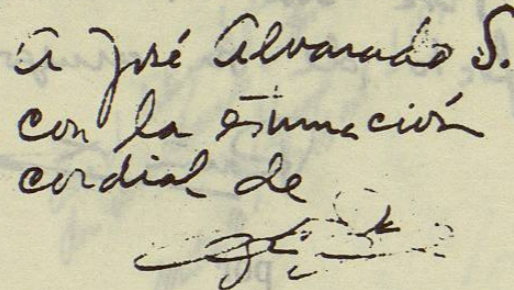 A José Alvarado S.
con la estimación
cordial de